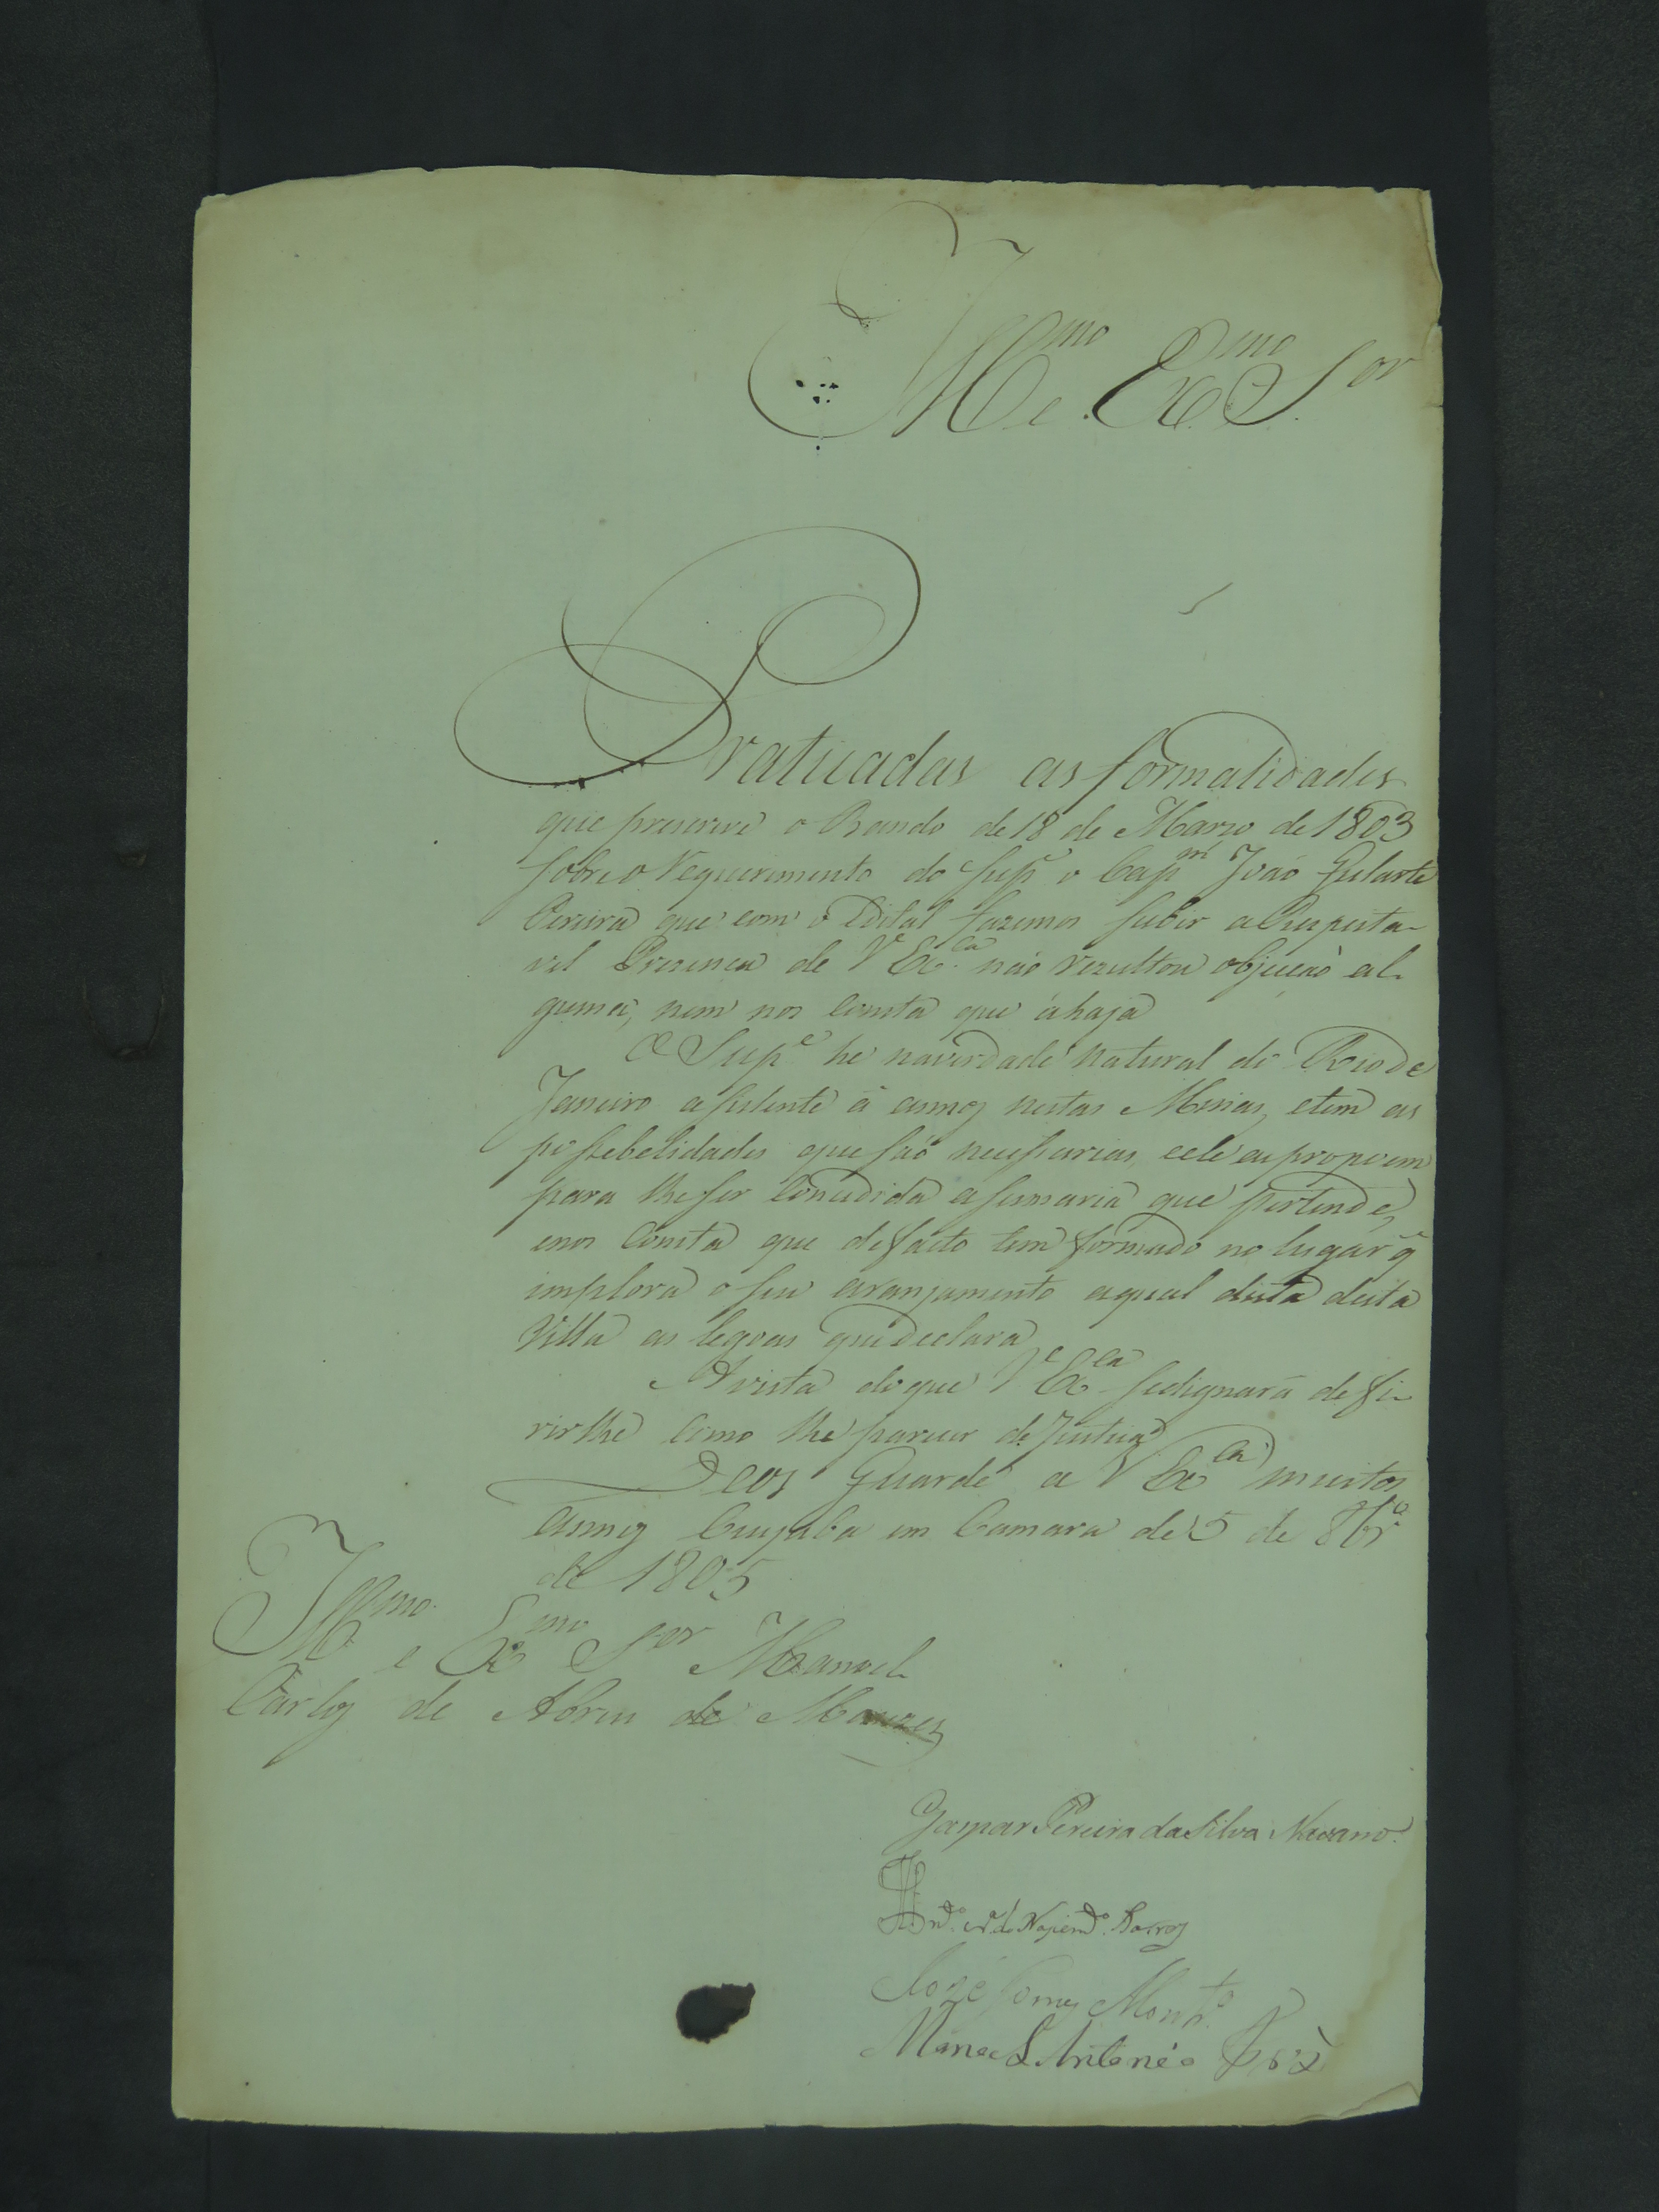 Ill.mo e Ex.mo S.or
Praticadas as formalidades
que prescreve o Bando de 18 de Marzo de 1803
sobre o requerimento do Sup.e o Cap.m João Gularte
Pereira que com o Edital fazemos subir a Respeita-
vel Prezença de V Ex.ca não rezultou objecção al-
guma, nem nos consta que ahaja
O Sup.e he naverdade natural do Rio de
Janeiro asistente á annos nestas Minas, etem as
possebelidades que são necessarias, eele eupropoem
para lhe ser concedida asesmaria que pertende,
enos consta que defacto tem formado no lugar q̃
implora o seu aranjamento aqual dista desta
Villa as legoas quedeclara
Avista doque V.e Ex.ca sedignará defe-
rirlhe como lhe parecer de Justiça
Deos Guarde a V Ex.ca muitos
annos Cuyaba em Camara de 5 de 8br.o
de 1805
Ill.mo e Ex.mo S.or Manoel
Carlos de Abreu de Menezes
Gaspar Pereira da Silva Navarro
Joze Gomes Montr.o
Manoel Antonio